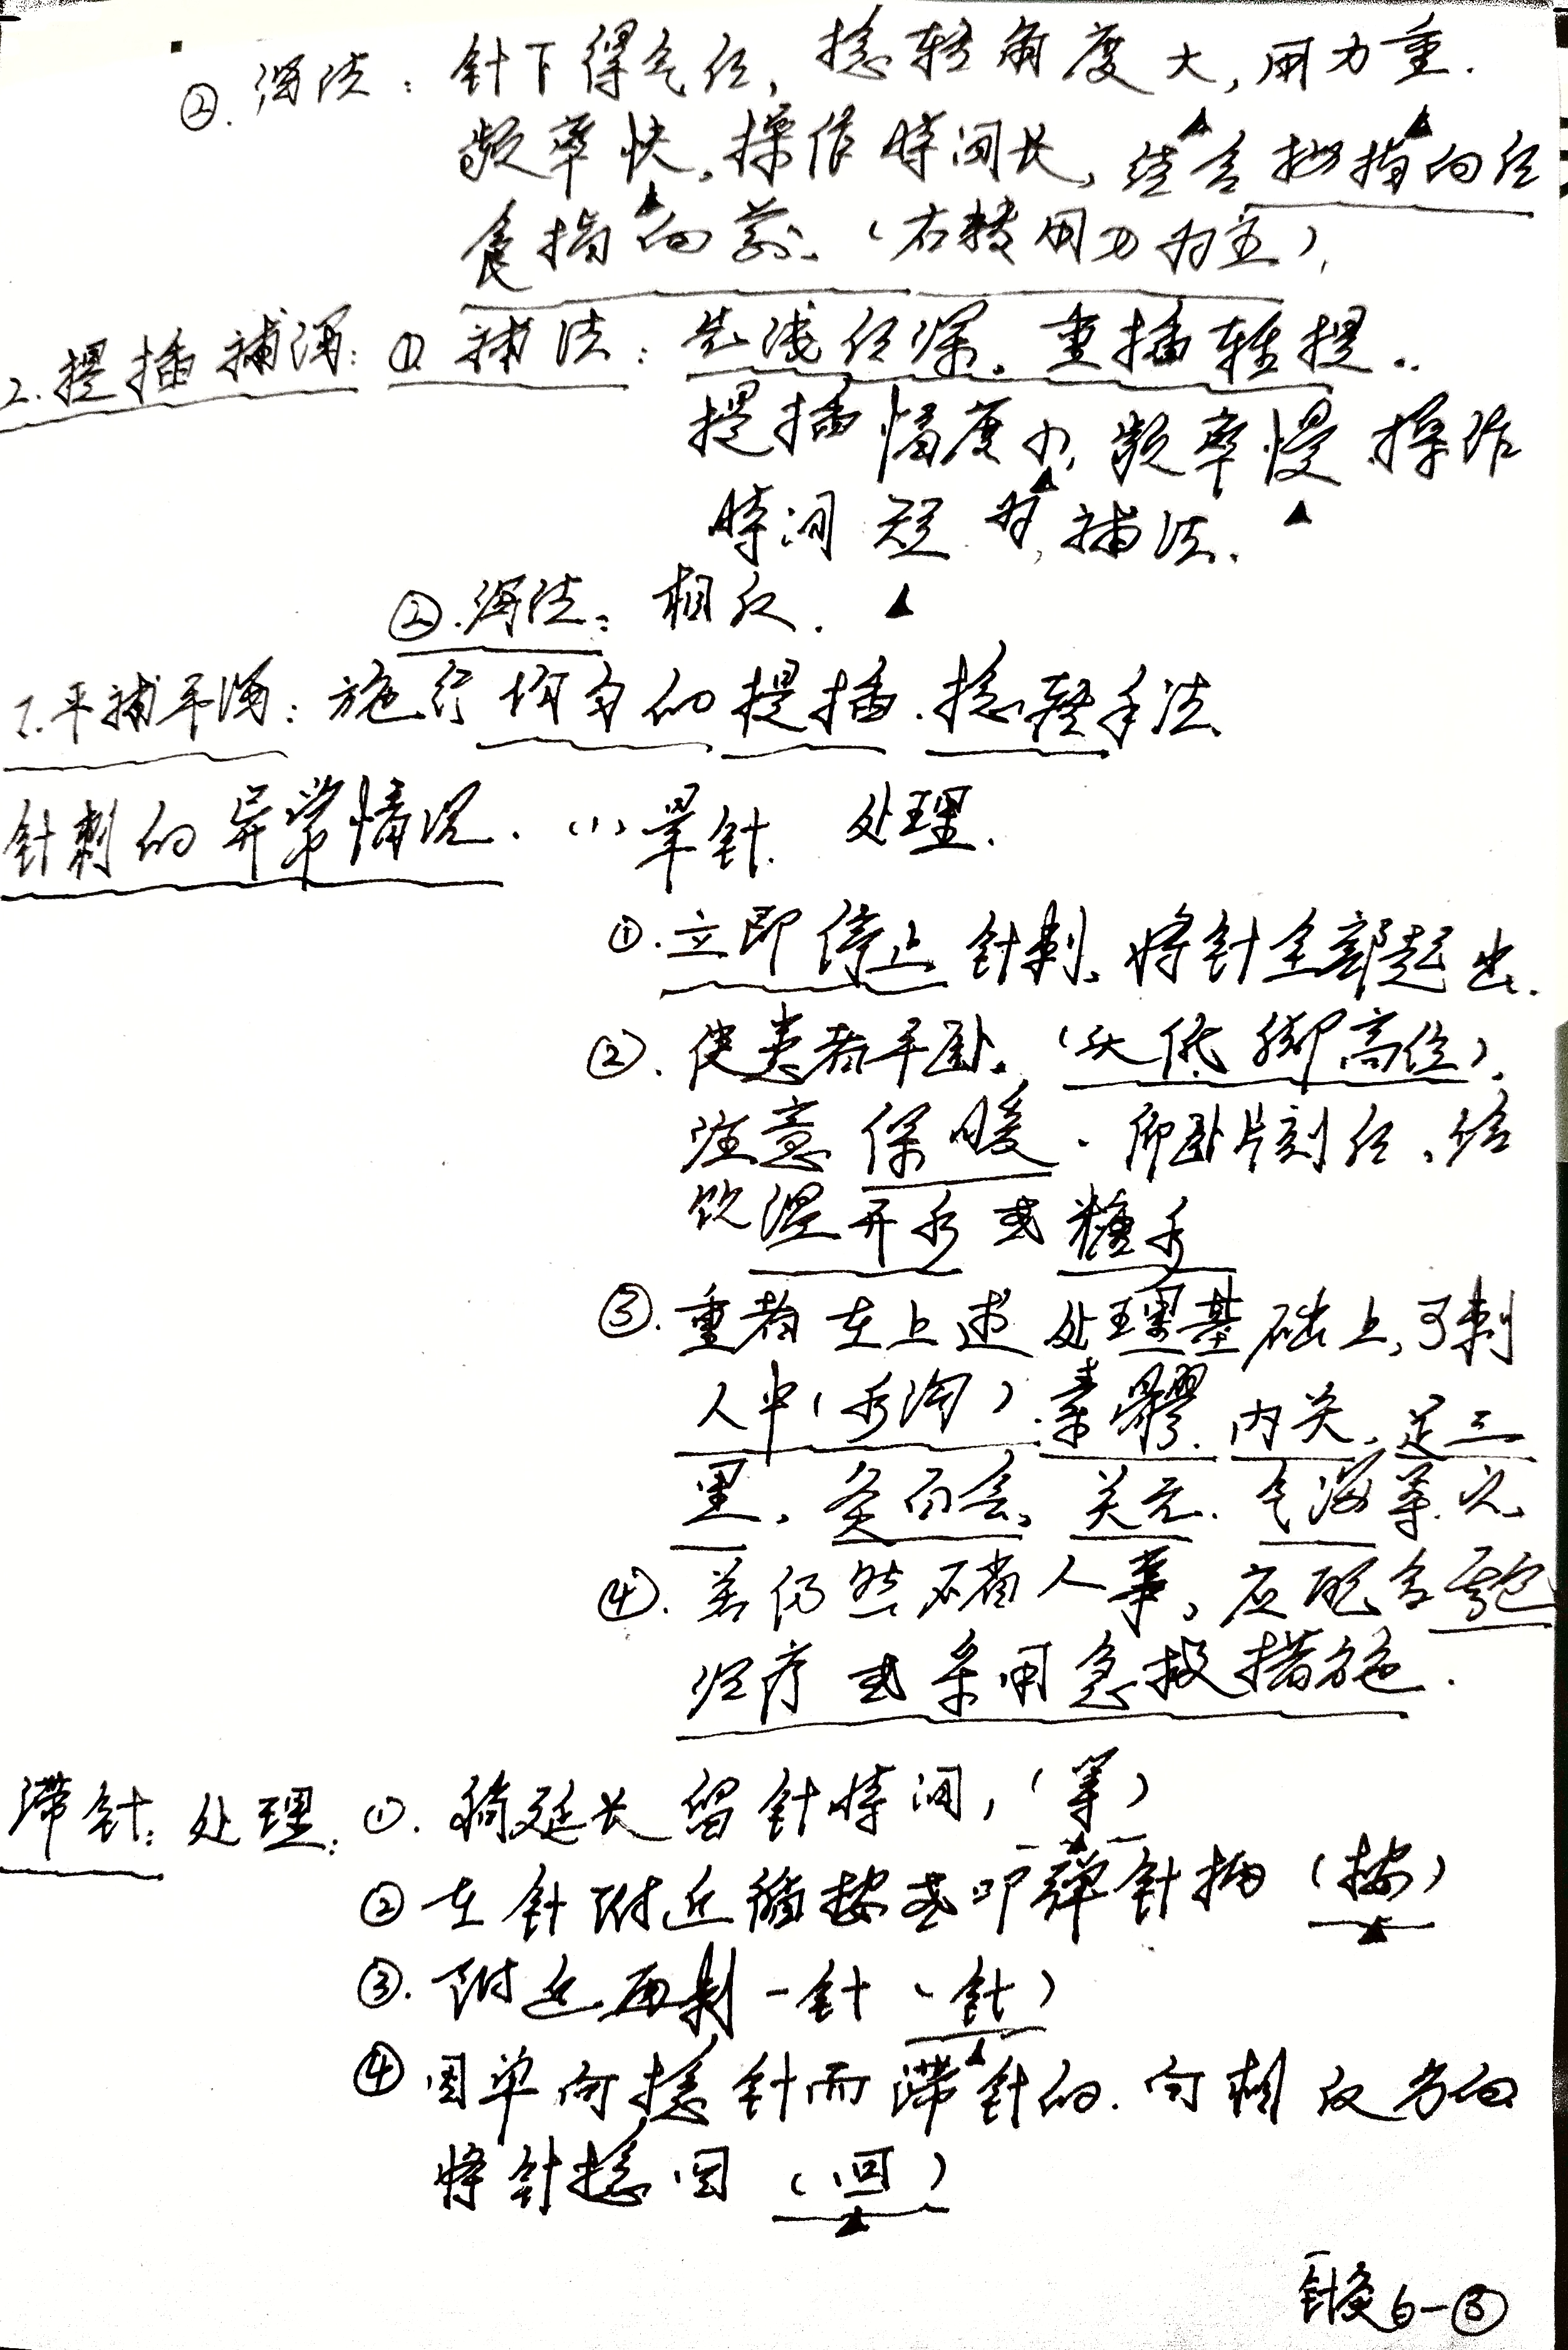 ②.泻法：针下得气后，捻转角度大，用力重.
频率快。操作時间长，结合拇指向后
食指向前。（右转用力为主），
2.提插補泻：①補法：先浅后深。重插轻提..
提插幅度小，频率慢.操作
時间短为，補法.
②.泻法：相反.
平補平泻：施行均匀的提插.捻转手法.
针刺的异常情况. (1)晕针. 处理.
①.立即停止针刺。将针全部起出.
②.使患者平卧。（头低脚高位）。
注意保暖.仰卧片刻后、给
饮温开水或糖水
③.重者在上述处理基础上，可刺
人中（水沟）.素髎.内关.足三
里。灸百会。关元.气海等穴
④.若仍然不省人事，应配合
治疗或采用急救措施.
滞针：处理：①.稍延长留针時间，（等）
②在针附近循按或叩弹针柄（按）
③.附近再刺一针（针）
④因单向捻针而滞针的.向相反方向
将针捻回（回）
针灸6-③